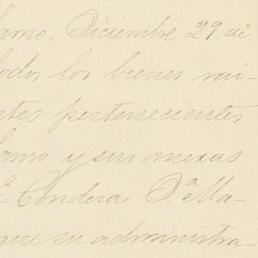 lamo. Diciembre 29. de
todos los bienes rai-
ntes pertenecientes
lamo y sus anexas
Condesa Dª. Ma-
que su administra-